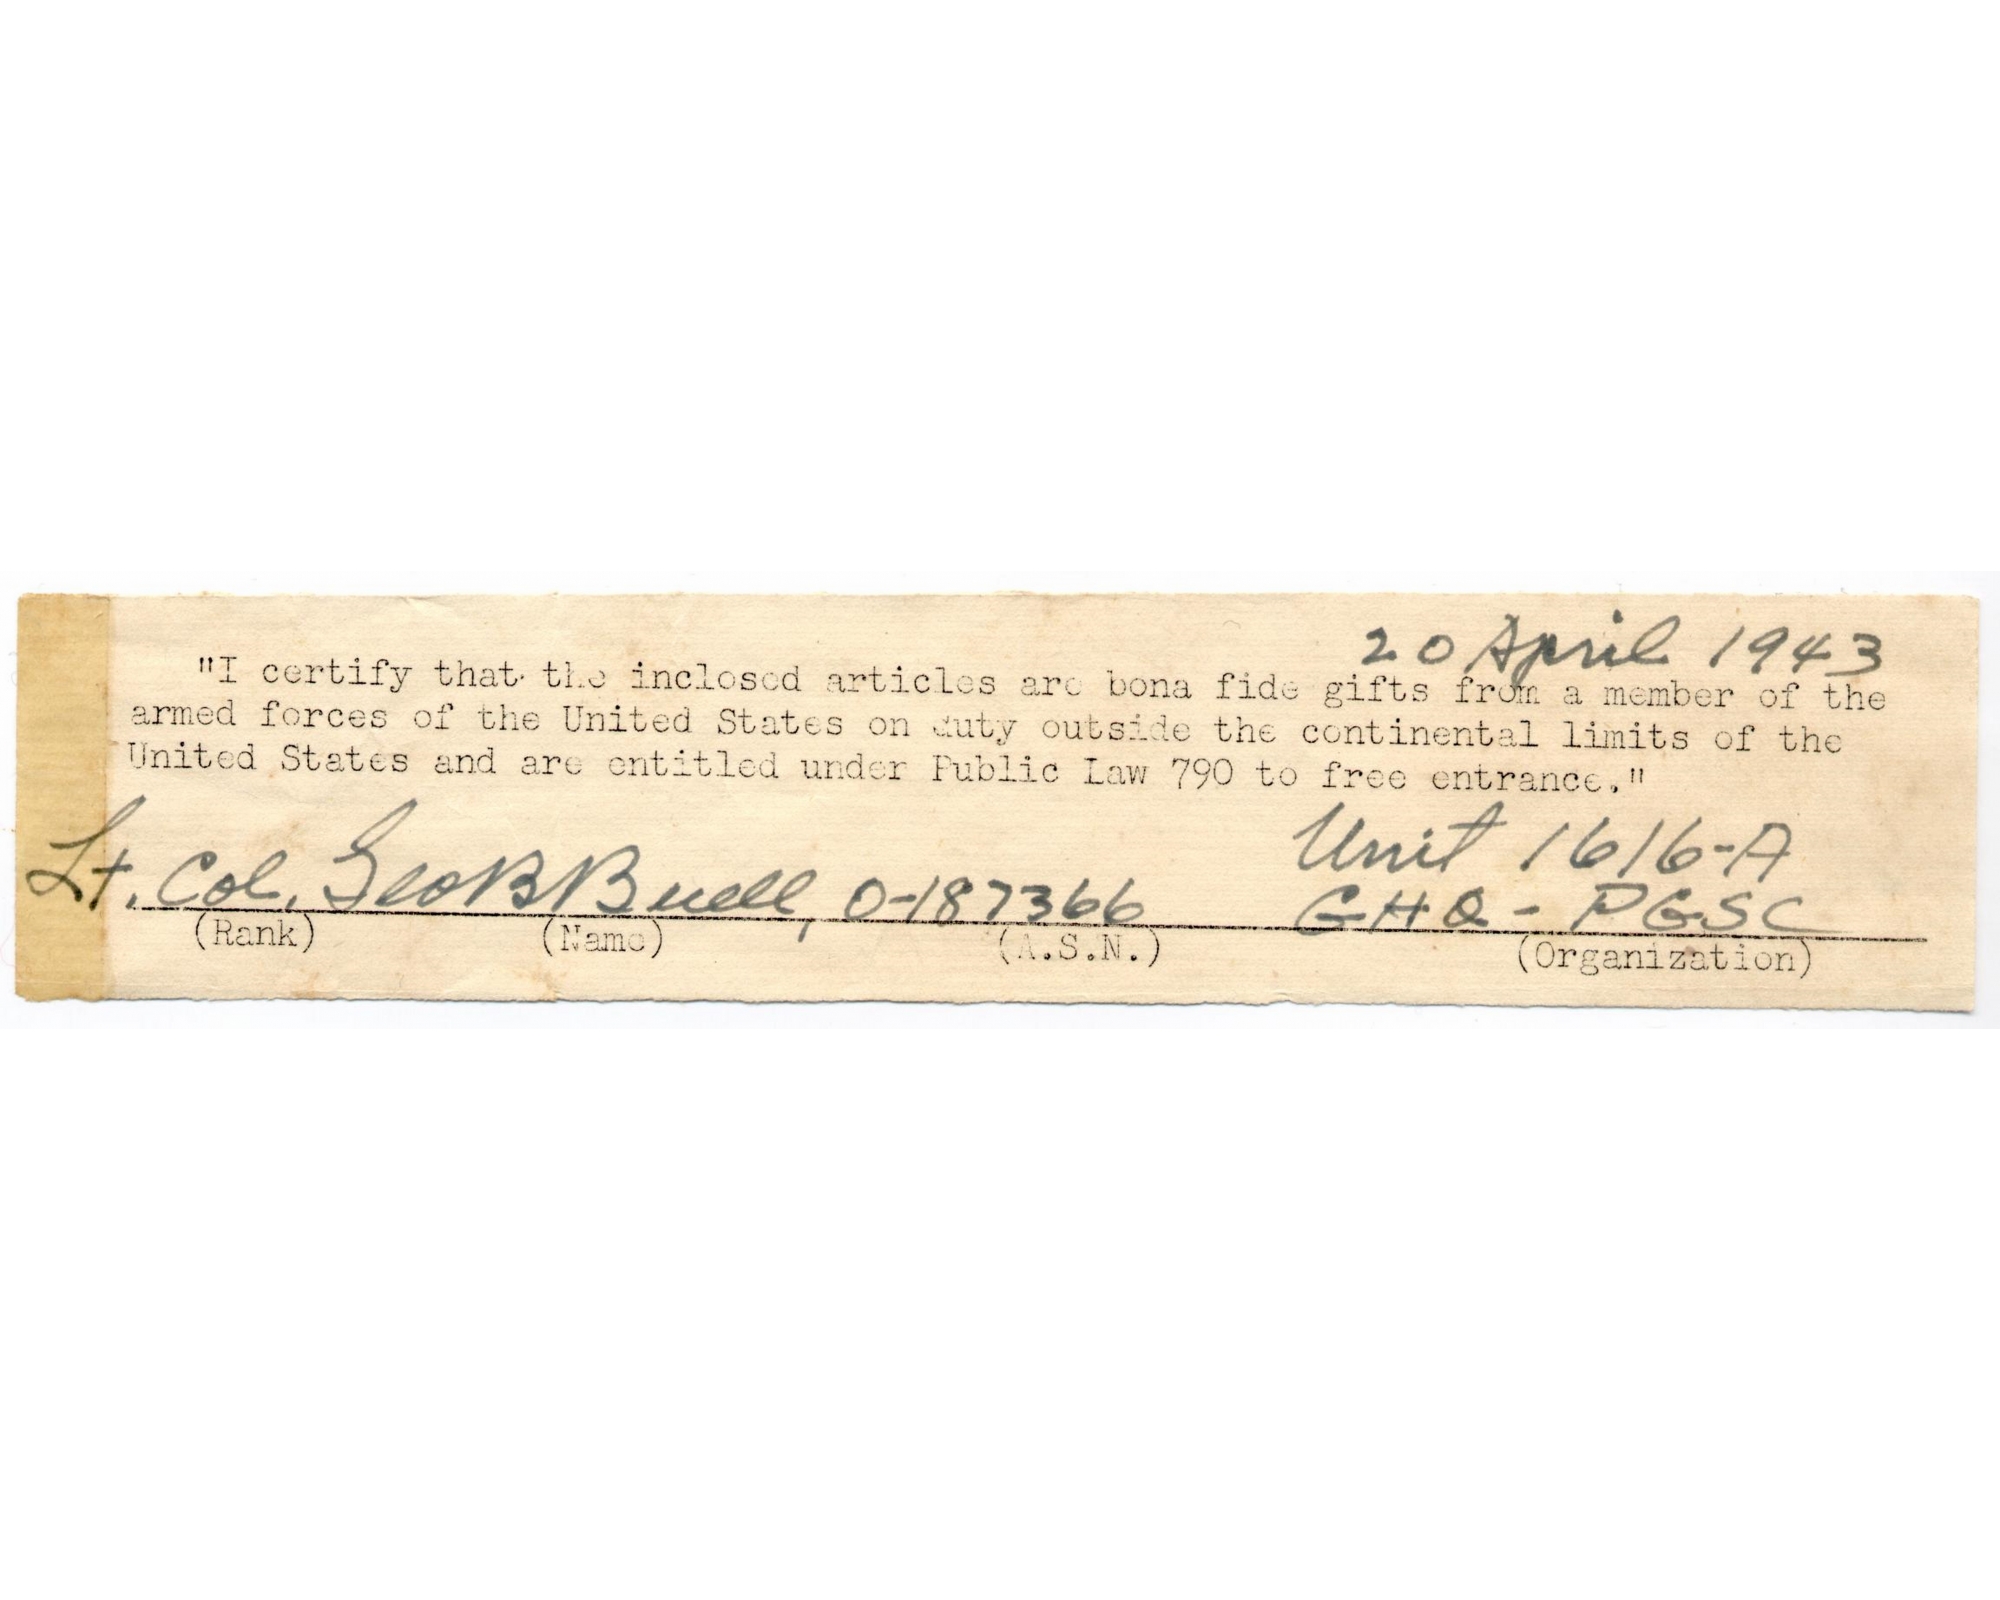 20 April 1943
"I certify that the inclosed articles are bona fide gifts from a member of the
armed forces of the United States on duty outside the continental limits of the
United States and are entitled under Public Law 790 to free entrance."
Unit 1616-A
Lt. Col. Geo B Buell, 0-187366 GHQ - PGSC
(Rank) (Name) (A.S.N.) (Organization)